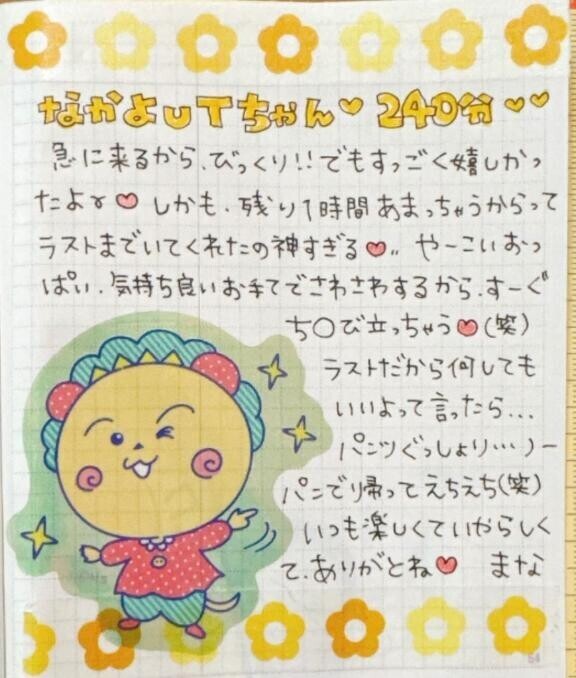 なかよしTちゃん♡ 240分 ♡♡
急に来るから、びっくり!!でもすっごく嬉しかっ
たよɤ♡ しかも、残り1時間あまっちゃうからって
ラストまでいてくれたの神すぎる♡〟 やーこいおっ
ぱい、気持ち良いお手てでさわさわするから、すーぐ
ち〇び立っちゃう♡(笑)
ラストだから何しても
いいよって言ったら…
パンツぐっしょり…ノー
パンでり帰ってえちえち(笑)
いつも楽しくていやらしく
て、ありがとね♡ まな
64